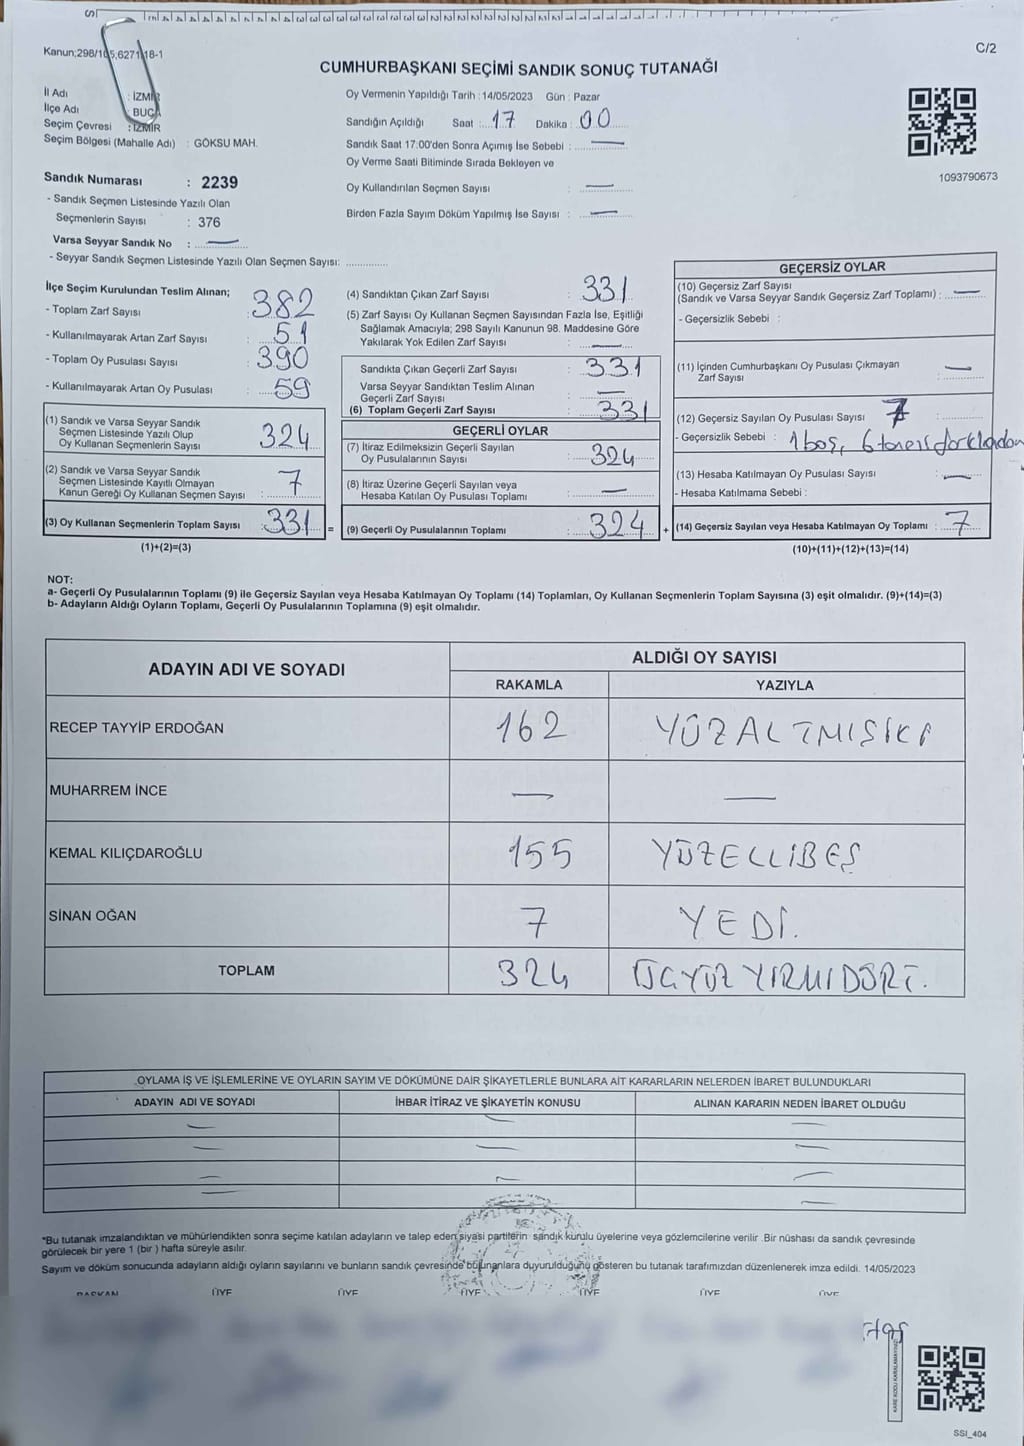 C/2
Kanun;298/105,6271/18-1
CUMHURBAŞKANI SEÇİMİ SANDIK SONUÇ TUTANAĞI
İl Adı : İZMİR
İlçe Adı : BUCA
Seçim Çevresi : İZMİR
Seçim Bölgesi (Mahalle Adı) : GÖKSU MAH.
Sandık Numarası : 2239
- Sandık Seçmen Listesinde Yazılı Olan
Seçmenlerin Sayısı : 376
Varsa Seyyar Sandık No : —
- Seyyar Sandık Seçmen Listesinde Yazılı Olan Seçmen Sayısı: ..............
Oy Vermenin Yapıldığı Tarih : 14/05/2023 Gün : Pazar
Sandığın Açıldığı Saat : 17 Dakika : 00
Sandık Saat 17:00'den Sonra Açımış İse Sebebi : —
Oy Verme Saati Bitiminde Sırada Bekleyen ve
Oy Kullandırılan Seçmen Sayısı : —
Birden Fazla Sayım Döküm Yapılmış İse Sayısı : —
1093790673
İlçe Seçim Kurulundan Teslim Alınan;
- Toplam Zarf Sayısı : 382
- Kullanılmayarak Artan Zarf Sayısı : 51
- Toplam Oy Pusulası Sayısı : 390
- Kullanılmayarak Artan Oy Pusulası : 59
(1) Sandık ve Varsa Seyyar Sandık
Seçmen Listesinde Yazılı Olup
Oy Kullanan Seçmenlerin Sayısı 324
(2) Sandık ve Varsa Seyyar Sandık
Seçmen Listesinde Kayıtlı Olmayan
Kanun Gereği Oy Kullanan Seçmen Sayısı : 7
(3) Oy Kullanan Seçmenlerin Toplam Sayısı : 331 =
(1)+(2)=(3)
(4) Sandıktan Çıkan Zarf Sayısı : 331
(5) Zarf Sayısı Oy Kullanan Seçmen Sayısından Fazla İse, Eşitliği
Sağlamak Amacıyla; 298 Sayılı Kanunun 98. Maddesine Göre
Yakılarak Yok Edilen Zarf Sayısı : —
Sandıkta Çıkan Geçerli Zarf Sayısı : 331
Varsa Seyyar Sandıktan Teslim Alınan
Geçerli Zarf Sayısı : —
(6) Toplam Geçerli Zarf Sayısı : 331
GEÇERLİ OYLAR
(7) İtiraz Edilmeksizin Geçerli Sayılan
Oy Pusulalarının Sayısı : 324
(8) İtiraz Üzerine Geçerli Sayılan veya
Hesaba Katılan Oy Pusulası Toplamı : —
(9) Geçerli Oy Pusulalarının Toplamı : 324 +
GEÇERSİZ OYLAR
(10) Geçersiz Zarf Sayısı
(Sandık ve Varsa Seyyar Sandık Geçersiz Zarf Toplamı) : —
- Geçersizlik Sebebi :
(11) İçinden Cumhurbaşkanı Oy Pusulası Çıkmayan
Zarf Sayısı : —
(12) Geçersiz Sayılan Oy Pusulası Sayısı 7
- Geçersizlik Sebebi : 1 boş, 6 tanesi
(13) Hesaba Katılmayan Oy Pusulası Sayısı : —
- Hesaba Katılmama Sebebi :
(14) Geçersiz Sayılan veya Hesaba Katılmayan Oy Toplamı : 7
(10)+(11)+(12)+(13)=(14)
NOT:
a- Geçerli Oy Pusulalarının Toplamı (9) ile Geçersiz Sayılan veya Hesaba Katılmayan Oy Toplamı (14) Toplamları, Oy Kullanan Seçmenlerin Toplam Sayısına (3) eşit olmalıdır. (9)+(14)=(3)
b- Adayların Aldığı Oyların Toplamı, Geçerli Oy Pusulalarının Toplamına (9) eşit olmalıdır.
ADAYIN ADI VE SOYADI ALDIĞI OY SAYISI
RAKAMLA YAZIYLA
RECEP TAYYİP ERDOĞAN 162 YÜZALTMIŞİKİ
MUHARREM İNCE — —
KEMAL KILIÇDAROĞLU 155 YÜZELLİBEŞ
SİNAN OĞAN 7 YEDİ.
TOPLAM 324 ÜÇYÜZYİRMİDÖRT.
OYLAMA İŞ VE İŞLEMLERİNE VE OYLARIN SAYIM VE DÖKÜMÜNE DAİR ŞİKAYETLERLE BUNLARA AİT KARARLARIN NELERDEN İBARET BULUNDUKLARI
ADAYIN ADI VE SOYADI İHBAR İTİRAZ VE ŞİKAYETİN KONUSU ALINAN KARARIN NEDEN İBARET OLDUĞU
— — —
— — —
— — —
— —
*Bu tutanak imzalandıktan ve mühürlendikten sonra seçime katılan adayların ve talep eden siyasi partilerin sandık kurulu üyelerine veya gözlemcilerine verilir .Bir nüshası da sandık çevresinde
görülecek bir yere 1 (bir ) hafta süreyle asılır.
Sayım ve döküm sonucunda adayların aldığı oyların sayılarını ve bunların sandık çevresinde bulunanlara duyurulduğunu gösteren bu tutanak tarafımızdan düzenlenerek imza edildi. 14/05/2023
BAŞKAN ÜYE ÜYE ÜYE ÜYE ÜYE ÜYE
KARE KODU KARALAMAYINIZ
SSI_404